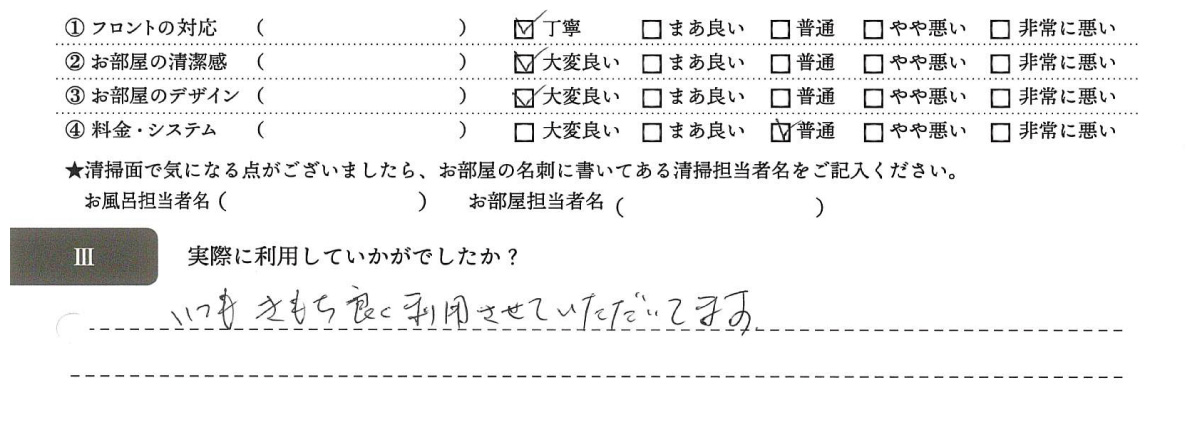 ① フロントの対応 ( ) ☑ 丁寧 □ まあ良い □ 普通 □ やや悪い □ 非常に悪い
② お部屋の清潔感 ( ) ☑ 大変良い □ まあ良い □ 普通 □ やや悪い □ 非常に悪い
③ お部屋のデザイン ( ) ☑ 大変良い □ まあ良い □ 普通 □ やや悪い □ 非常に悪い
④ 料金・システム ( ) □ 大変良い □ まあ良い ☑ 普通 □ やや悪い □ 非常に悪い
★清掃面で気になる点がございましたら、お部屋の名刺に書いてある清掃担当者名をご記入ください。
お風呂担当者名 ( ) お部屋担当者名 ( )
Ⅲ 実際に利用していかがでしたか？
いつも きもち良く利用させていただいてます